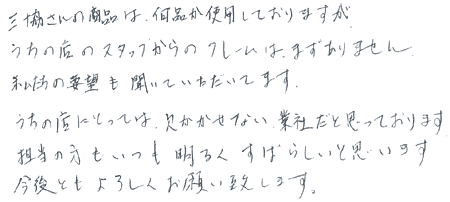 三協さんの商品は、何品か使用しておりますが
うちの店のスタッフからのクレームは、まずありません。
私たちの要望も聞いていただいてます。
うちの店にとっては、欠かかせない業社だと思っております
担当の方もいつも明るくすばらしいと思います
今後ともよろしくお願い致します。